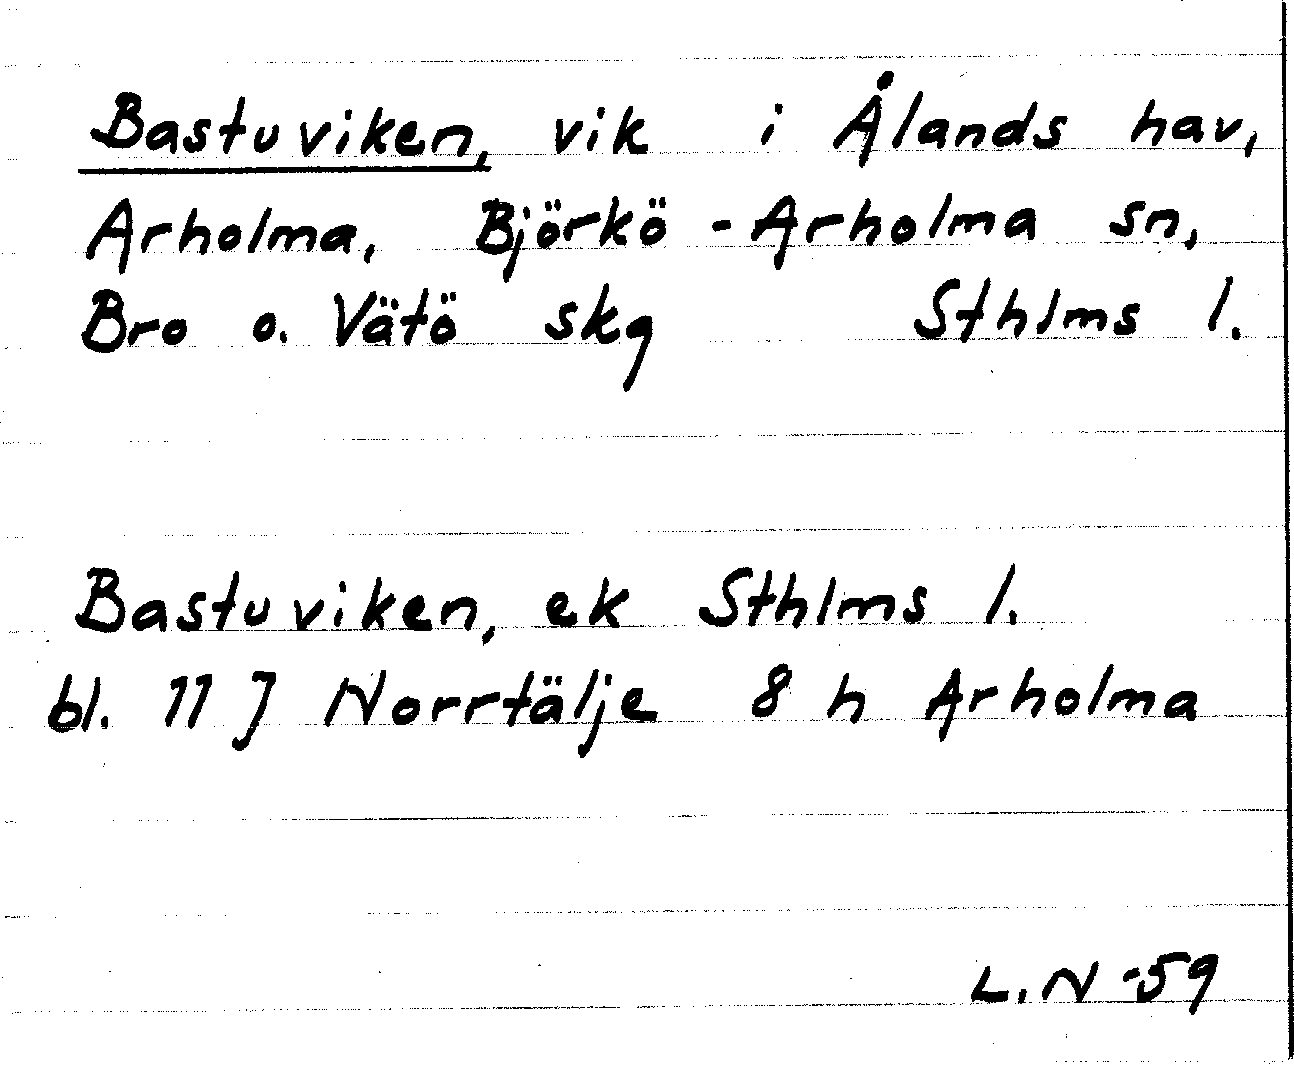 Bastuviken, vik i Ålands hav,
Arholma, Björkö-Arholma sn,
Bro o. Vätö skg Sthlms l.
Bastuviken, ek Sthlms l.
bl. 11 J Norrtälje 8 h Arholma
L.N -59